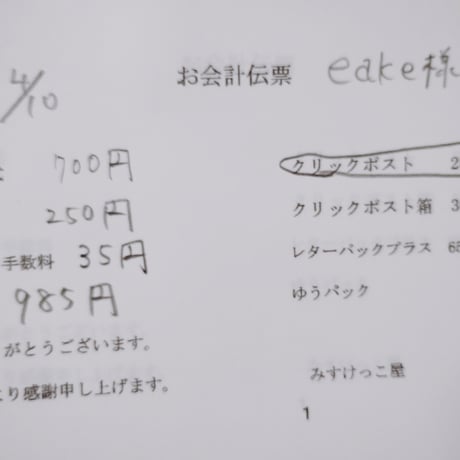 4/10
お会計伝票 eake様
700円
クリックポスト 2
250円
クリックポスト箱 3
手数料 35円
レターパックプラス 65
985円
ゆうパック
がとうございます。
より感謝申し上げます。
みすけっこ屋
1